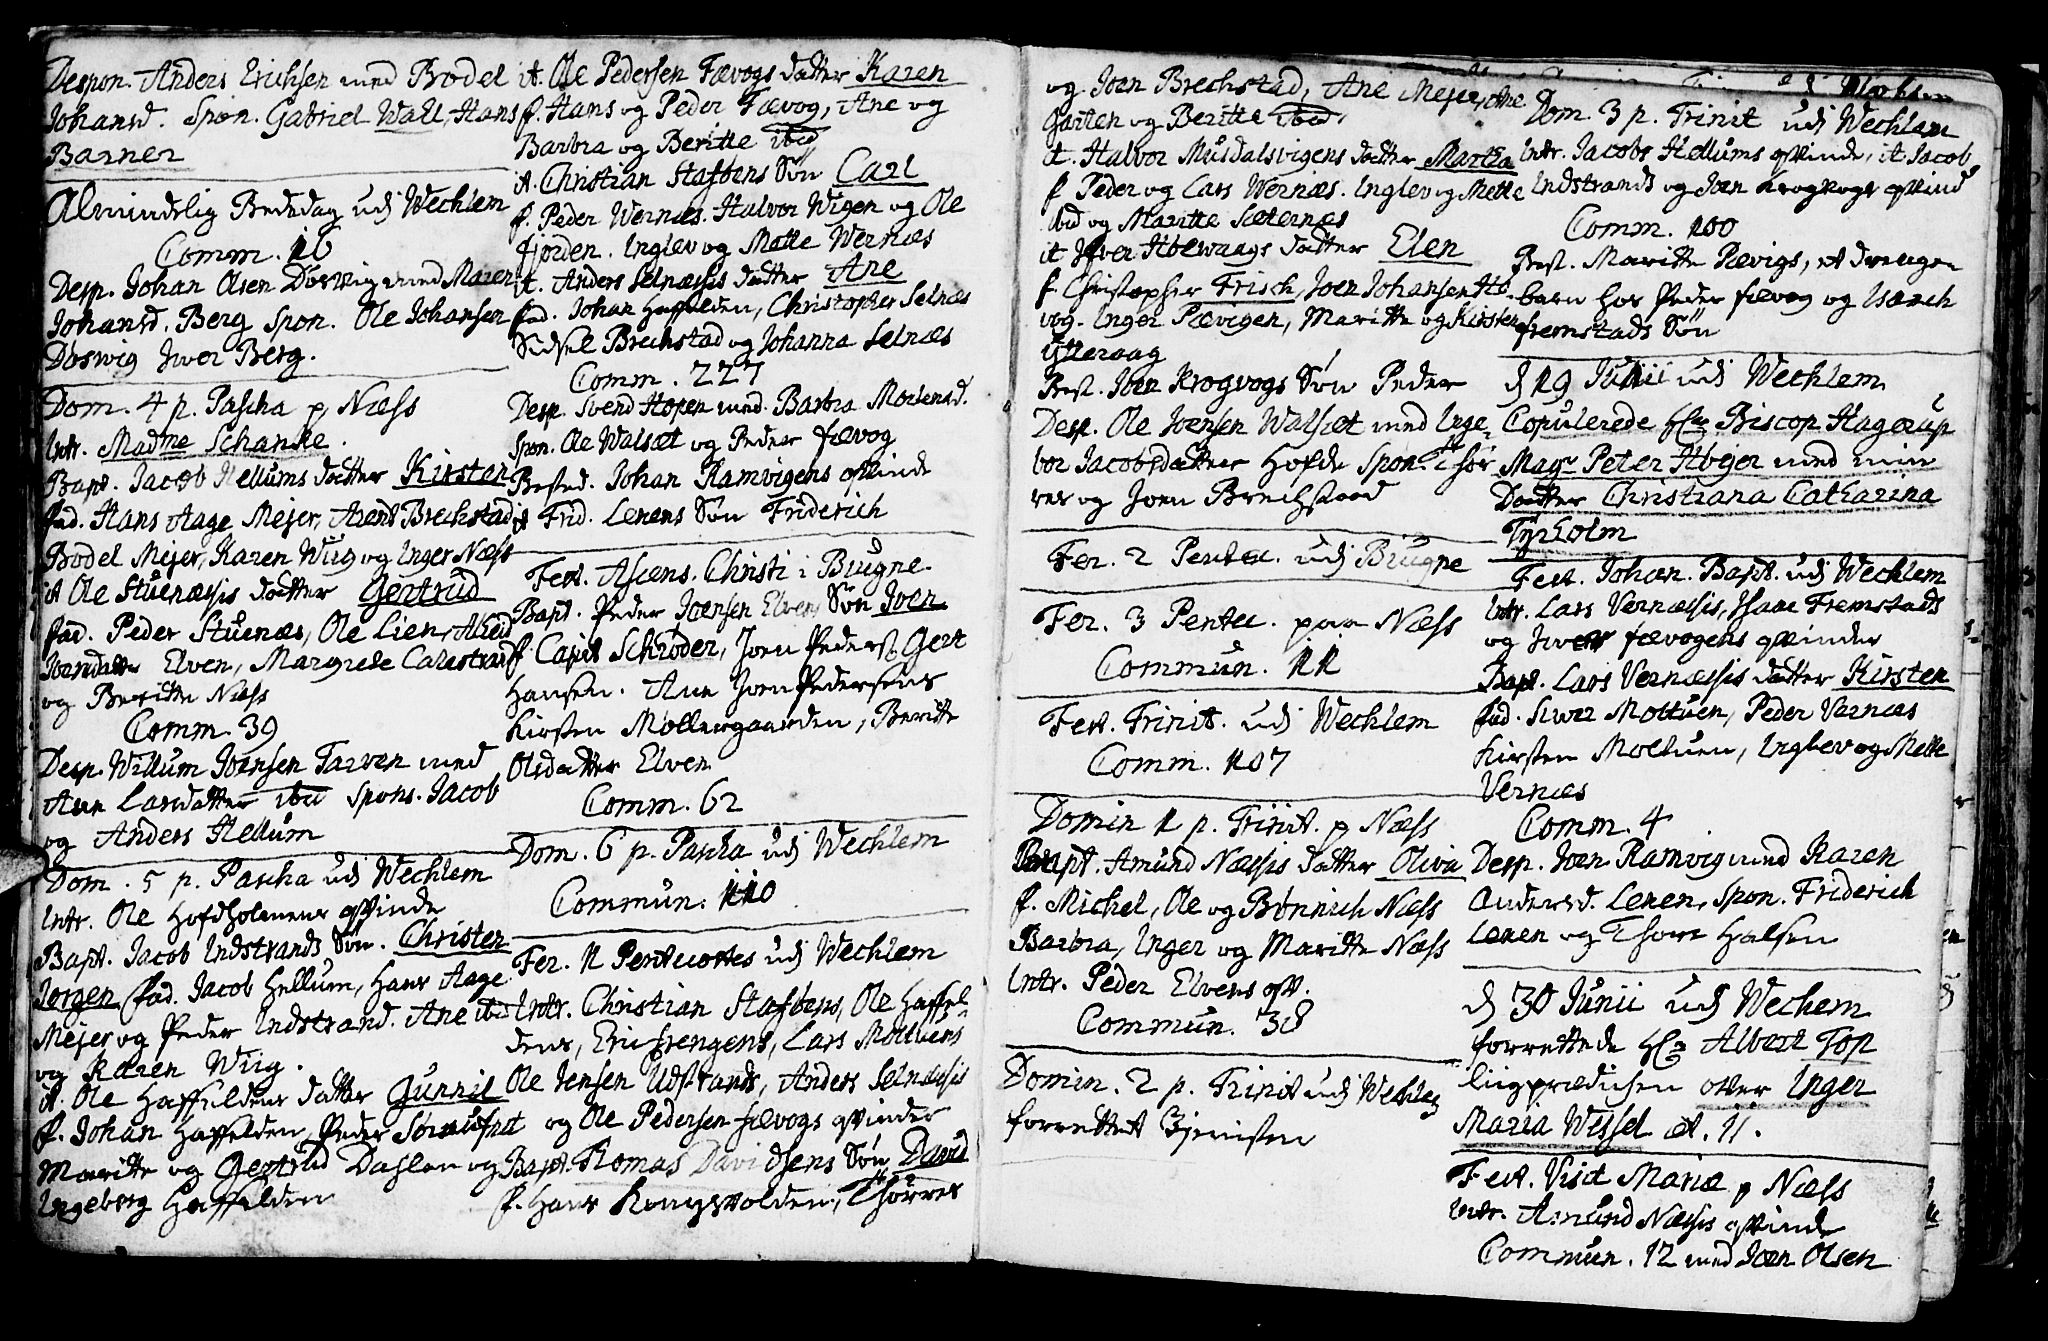 Despon. Anders Erichsen med Bodel
Johansd. Spon. Gabriel Wall, Hans
Barner
Almindelig Bededag udj Wechlem
Comm. 16
Desp. Johan Olsen Døsvig med Maren
Johansd. Berg spon. Ole Johansen
Døsvig Iver Berg.
Dom. 4 p. Pascha p Næss
Intr. Madme Schanke.
Bapt. Jacob Hellums datter Kirsten
fad. Hans Aage Mejer, Arent Brechstad
Bodel Mejer, Karen Wiig og Inger Næss
it Ole Stuenæssis datter Gertrud
fad. Peder Stuenæs, Ole Lien, Aleid
Joensdatter Elven, Margrede
og Beritte Næss
Comm. 39
Desp. Willum Joensen Tarven med
Ane Larsdatter ibid spons. Jacob
og Anders Hellum
Dom. 5 p. Pascha udj Wechlem
Intr. Ole Hofdholmens qvinde
Bapt. Jacob Indstrands Søn. Christen
Jørgen fad. Jacob Hellum, Hans Aage
Mejer og Peder Indstrand. Ane ibid
og Karen Wiig.
it. Ole Haffeldens datter Gunnil
f. Johan Haffelden, Peder
Maritte og Gertrud Dahlen og
Ingeborg Haffelden
it. Ole Pedersen Fævogs datter Karen
f. Hans og Peder Fævog, Ane og
Barbra og Beritte ibid
it. Christian Stafsens Søn Carl
f. Peder Wernæs. Halvor Wigen og Ole
fjorden. Inglev og Mette Wernæs
it. Anders Selnæssis datter Ane
fad. Johan Haffelden, Christopher Selnæs
Sidsel Brechstad og Johanna Selnæs
Comm. 227
Desp. Svend Hopen med Barbra Mortensd.
Spon. Ole Walsæt og Peder fævog
Begravd. Johan Ramvigens qvinde
it Frid. Lenens Søn Friderich
Fest. Ascens. Christi i Biugne
Bapt. Peder Joensen Elvens Søn Joen
f. Capit Schrøder, Joen Peders. Gert
Hansen. Ane Joen Pedersens
Kirsten Mollergaarden, Beritte
Olsdatter Elven
Comm. 62
Dom. 6 p. Pascha udj Wechlem
Commun. 110
Fer. 1 Pentecostes udj Wechlem
Intr. Christian Stafsens, Ole Haffel-
dens, Lars Moltuens
Ole Jensen Udstrands, Anders Selnæsis
og Ole Pedersen fævogs qvinder
Bapt. Thomas Davidsens Søn David
f. Hans Kongsvolden, Thørres
og Joen Brechstad, Ane Mejer, Ane
Garten og Beritte ibid.
it. Halvor Musdalsvigens datter Martha
f Peder og Lars Wernæs. Inglev og Mette
ibid og Maritte Sæternæs
it Iffver Howaags datter Elen
f. Christopher Frisch, Joen Johansen Ho
vog. Inger Pævigen, Maritte og Kirsten
Ytteraag
Begr. Joen Krogvogs Søn Peder
Desp. Ole Joensen Walsæt med Inge-
bor Jacobsdatter Hofde Spon. Thør
res og Joen Brechstaed
Fer. 2 Pentec. udj Biugne
Fer. 3 Pentec. paa Næss
Commun. 11
Fest. Trinit. udj Wechlem
Comm. 107
Domin 1 p. Trinit. p Næss
Bapt. Amund Næssis datter Oliva
f. Michel, Ole og Bønnich Næss
Barbra, Inger og Maritte Næss
Intr. Peder Elvens qv.
Commun. 38
Domin. 2 p. Trinit udj Wechlem
forrettet Tjenisten
Dom. 3 p. Trinit udj Wechlem
Intr. Jacobs Hellums qvinde, it Jacob
Indstrands og Joen Krogvogs qvind
Comm. 100
Begr. Maritte Pævigs, et drenge
barn hos Peder fævog og Isaach
fremstads Søn
d 19 Junii udj Wechlem
Copulerede Hr Biscop Hagerup
Magr Peter Høyer med min
Daatter Christiana Catharina
Tyrholm
Fest. Johan. Bapt. udj Wechlem
Intr. Lars Vernæssis, Isaac Fremstads
og Iver fævogens qvinder
Bapt. Lars Vernæssis datter Kirsten
fad. Siver Moltuen, Peder Vernæs
Kirsten Moltuen, Inglev og Mette
Vernæs
Comm. 4
Desp. Joen Ramvig med Karen
Andersd. Lenen, Spon. Friderich
Lenen og Thore Halsen
d 30 Junii udj Wechem
forrettede Hr Albert Top
liigprædichen over Inger
Maria Wessel æt. 11.
Fest. Visit Mariæ p Næss
Intr. Amund Næssis qvinde
Commun. 12 med Joen Olsen